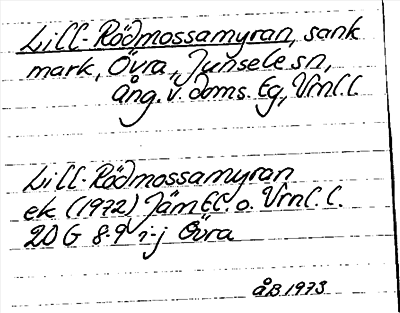 Lill-Rödmossamyran, sank
mark, Övra, Junsele sn,
Ång. v. doms. Eg., Vrnl.l
Lill-Rödmossamyran
ek (1972) Jämtl. o. Vrnl. l.
20 G 8-9 i-j Övra
ÅB 1973